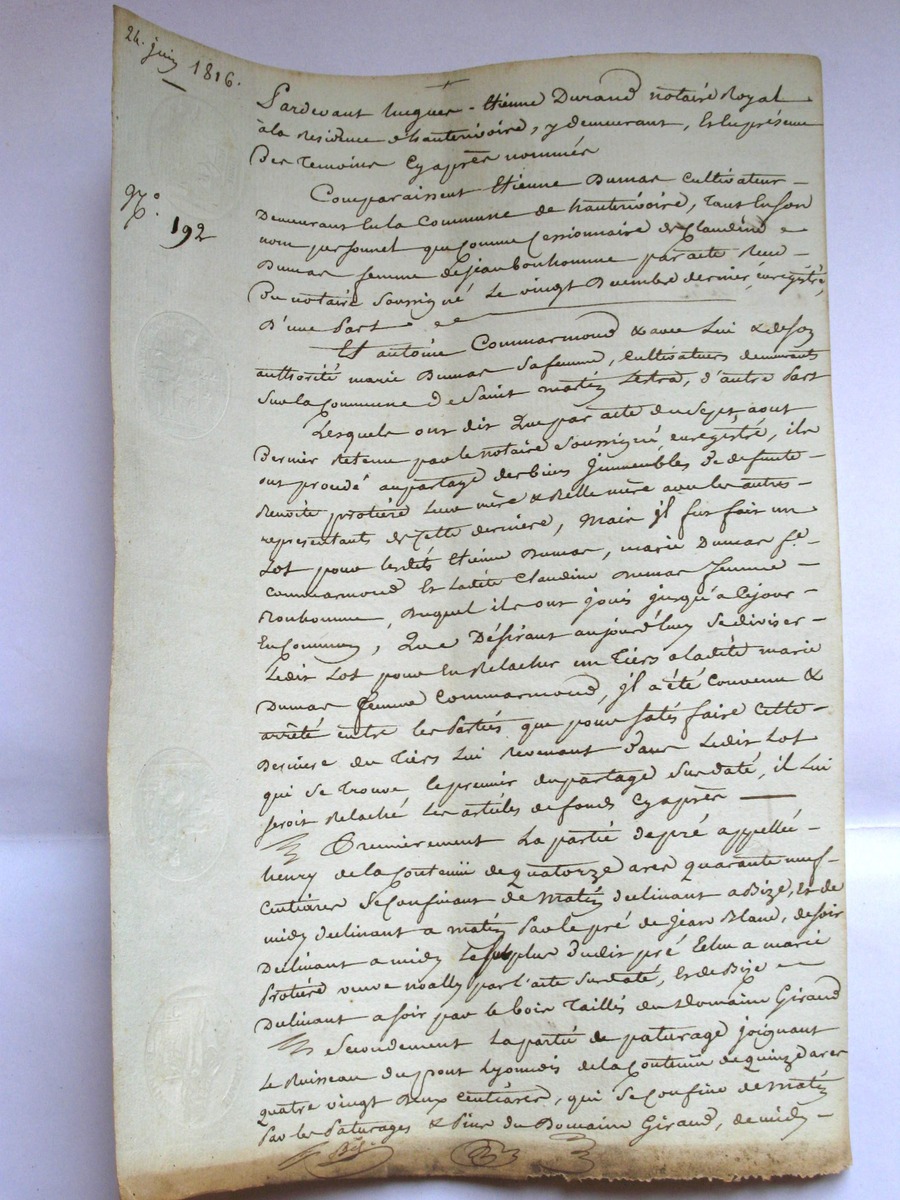 24. juin 1816.
N.o 192
Pardevant hugues - Etienne Durand notaire Royal
à la Residence d'hauterivoire, y demeurant, Et En présence
Des Temoins Cyaprès nommés
Comparaissent Etienne Dumas Cultivateur
Demeurant En la Commune de hauterivoire, Tant En son
nom personnel que Comme Cessionnaire de Claudine
Dumas femme de jean bonhomme par acte Recu
Du notaire Soussigné Le vingt Decembre dernier, enregistré,
D'une Part
Et antoine Commarmond & avec Lui & de son
authorité marie Dumas Sa femme, Cultivateurs demeurants
Sur la Commune De Saint martin Lestra, d'autre Part
Lesquels ont dit Que par acte du Sept aout
Dernier Retenu par le notaire Soussigné enregistré, ils
ont procédé au partage des biens Immeubles De defunte
Benoite protiere Leur mère & Belle mère avec les autres
representants de Cette derniere, Mais il fut fait un
Lot pour lesdits Etienne Dumas, marie Dumas fe.
Commarmond Et Ladite Claudine Dumas femme
Bonhomme, Duquel ils ont jouis jusqu'à Cejour
En Commun, Que Désirant aujourd'huy Se diviser
Ledit Lot pour En Relacher un Tiers a ladite marie
Dumas femme Commarmond, il a été Convenu &
arrêté entre les Parties que pour satisfaire Cette
Derniere du Tiers Lui Revenant Dans Ledit Lot
qui Se Trouve le premier du partage Sus daté, il Lui
seroit Relaché Les articles de fonds Cyaprès
Premierement La partie de pré appellée
henry de la Contenue de quatorze ares quarante neuf
Centiares Se Confinant de Matin declinant a Bize, Et de
midy declinant a matin Par le pré de Jean Blanc, de soir
Declinant a midy Le surplus dudit pré Echu a marie
Protiere veuve noally par l'acte Sus daté, Et de Bize
Declinant a soir par le bois Taillés du Domaine Giraud
Secondement La partie de paturage joignant
Le Ruisseau du pont Lyonnais de la Contenue de quinze ares
quatre vingt Deux Centiares, qui Se Confine de Matin
Par les Paturages & Pins du Domaine Giraud, de midy